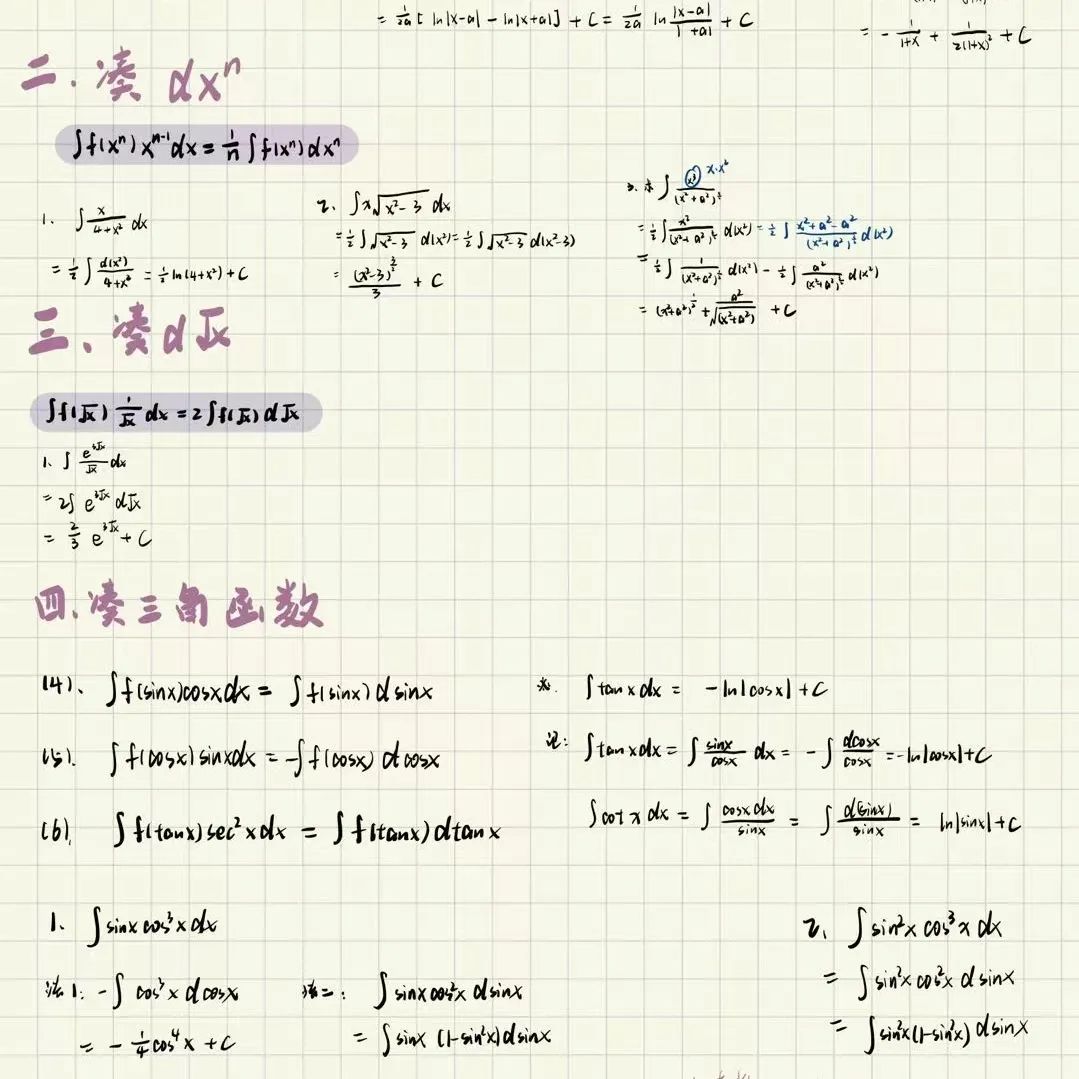 = 1/2a [ ln|x-a| - ln|x+a| ] + C = 1/2a ln |x-a|/| +a| + C
= - 1/(1+x) + 1/(2(1+x)²) + C
二、凑 dxⁿ
∫f(xⁿ) xⁿ⁻¹ dx = 1/n ∫f(xⁿ) dxⁿ
1. ∫ x/(4+x²) dx
= 1/2 ∫ d(x²)/(4+x²) = 1/2 ln(4+x²) + C
2. ∫x√(x²-3) dx
= 1/2 ∫√(x²-3) d(x²) = 1/2 ∫√(x²-3) d(x²-3)
= (x²-3)^(3/2)/3 + C
3. 求 ∫ x³/(x²+a²)^(3/2) x·x²
= 1/2 ∫ x²/(x²+a²)^(3/2) d(x²) = 1/2 ∫ (x²+a²-a²)/(x²+a²)^(3/2) d(x²)
= 1/2 ∫ 1/(x²+a²)^(1/2) d(x²) - 1/2 ∫ a²/(x²+a²)^(3/2) d(x²)
= (x²+a²)^(1/2) + a²/√(x²+a²) + C
三、凑d√x
∫f(√x) 1/√x dx = 2∫f(√x) d√x
1、∫ e^(3√x)/√x dx
= 2∫ e^(3√x) d√x
= 2/3 e^(3√x) + C
四、凑三角函数
(4)、∫f(sinx)cosxdx = ∫f(sinx) dsinx
(5). ∫f(cosx)sinxdx = -∫f(cosx) dcosx
(6). ∫f(tanx)sec²xdx = ∫f(tanx)dtanx
求. ∫tanxdx = -ln|cosx|+C
记: ∫tanxdx = ∫ sinx/cosx dx = -∫ dcosx/cosx = -ln|cosx|+C
∫cotxdx = ∫ cosxdx/sinx = ∫ d(sinx)/sinx = ln|sinx|+C
1、∫sinxcos³xdx
法1: -∫cos³xdcosx
= -1/4 cos⁴x + C
法二: ∫sinxcos²xdsinx
= ∫sinx(1-sin²x)dsinx
2、∫sin²xcos³xdx
= ∫sin²xcos²xdsinx
= ∫sin²x(1-sin²x)dsinx